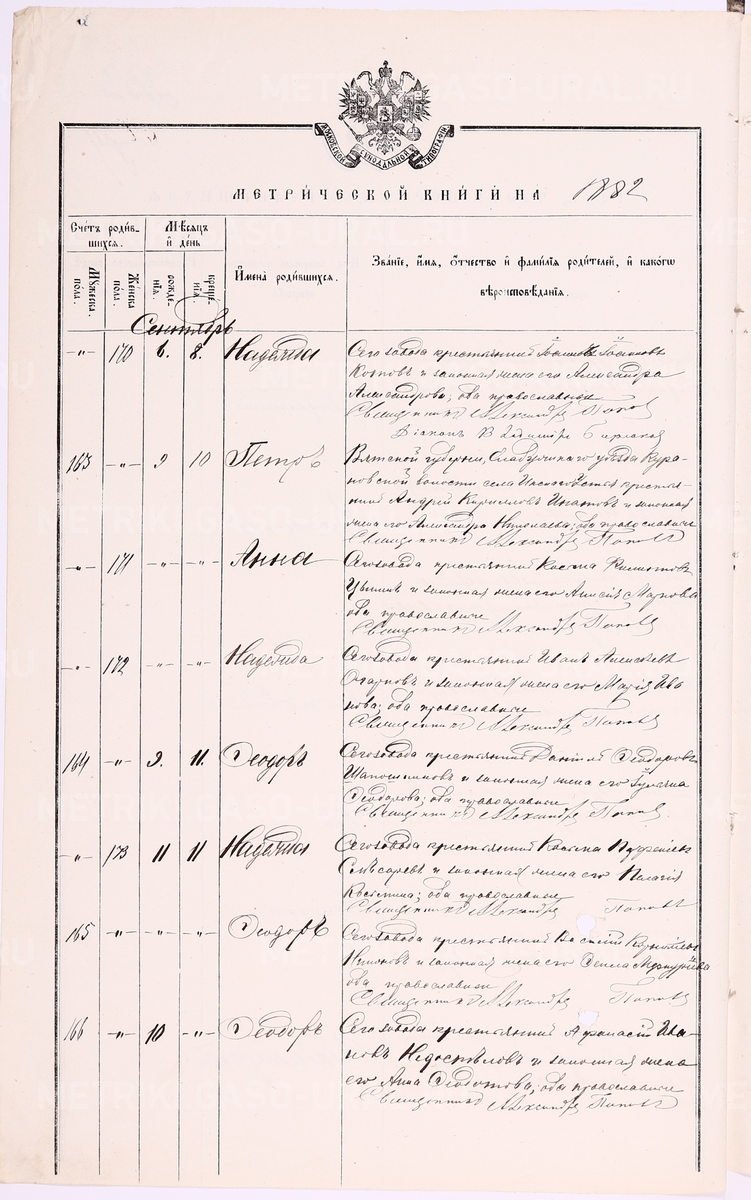 МОСКОВСКОЙ СѴНОДАЛЬНОЙ ТИПОГРАФІИ
МЕТРИ́ЧЕСКОЙ КНИ́ГИ НА 1882
Сче́тъ роди́в-
шихся.
Мꙋ́жеска по́ла.
Же́нска по́ла.
Мѣ́сяцъ
и҆ де́нь
рожде́нїя.
креще́нїя.
И҆мена̀ роди́вшихся.
Зва́нїе, и҆́мя, ѻ҆́тчество и҆ фамı́лїѧ роди́телей, и҆ како́гѡ
вѣроисповѣ́данїѧ.
Сентябрь
-"- 170 6. 8. Надежда
Сего завода крестьянинъ Іоаннъ Іоанновъ
и законная жена его Александра
Александрова, оба православные
Священникъ Александръ Поповъ
Діаконъ Владиміръ
163 -"- 9 10 Петръ
Вятской губерніи, уѣзда
волости села крестья-
нинъ Андрей Кирилловъ и законная
жена его Александра Николаева, оба православные
Священникъ Александръ Поповъ
-"- 171 -"- -"- Анна
Сего завода крестьянинъ Косьма
и законная жена его Маркова
оба православные
Священникъ Александръ Поповъ
-"- 172 -"- -"- Надежда
Сего завода крестьянинъ Иванъ Алексѣевъ
и законная жена его Марія Ива-
нова, оба православные
Священникъ Александръ Поповъ
164 -"- 9. 11. Ѳеодоръ
Сего завода крестьянинъ Даніилъ Ѳеодоровъ
Шапошниковъ и законная жена его Іуліана
Ѳеодорова, оба православные
Священникъ Александръ Поповъ
-"- 173 11 11 Надежда
Сего завода крестьянинъ Косьма
Слѣсаревъ и законная жена его Пелагія
оба православные
Священникъ Александръ Поповъ
165 -"- -"- -"- Ѳеодоръ
Сего завода крестьянинъ
и законная жена его Ѳекла Меркурьева
оба православные
Священникъ Александръ Поповъ
166 -"- 10 -"- Ѳеодоръ
Сего завода крестьянинъ Аѳанасій Ива-
новъ Недоспѣловъ и законная жена
его Анна Ѳедотова, оба православные
Священникъ Александръ Поповъ